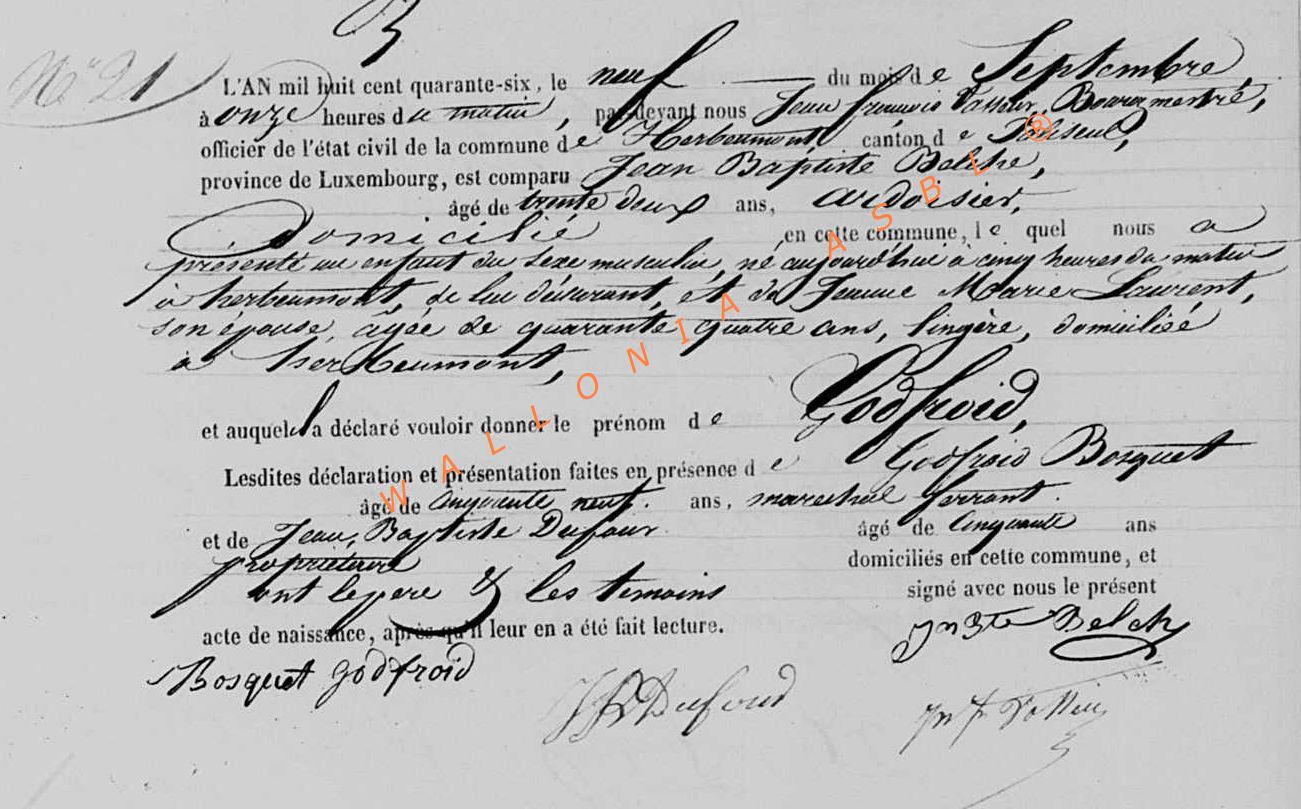 N° 21
L'AN mil huit cent quarante-six, le neuf du mois de Septembre,
à onze heures du matin, par devant nous Jean françois Bourgmestre,
officier de l'état civil de la commune de Herbeumont, canton de Paliseul,
province de Luxembourg, est comparu Jean Baptiste Belche,
âgé de trente deux ans, ardoisier,
Domicilié en cette commune, lequel nous a
présenté un enfant du sexe masculin, né aujourd'hui à cinq heures du matin
à herbeumont, de lui déclarant, et de Jeanne Marie Laurent,
son épouse, âgée de quarante quatre ans, lingère, domiciliée
à herbeumont,
et auquel il a déclaré vouloir donner le prénom de Godfroid,
Lesdites déclaration et présentation faites en présence de Godfroid Bosquet
âgé de cinquante neuf ans, marechal ferrant.
et de Jean Baptiste Dufour âgé de Cinquante ans
propriétaire domiciliés en cette commune, et
ont le pere & les temoins signé avec nous le présent
acte de naissance, après qu'il leur en a été fait lecture.
Jn Bte Belche
Bosquet godfroid
JB Dufour
WALLONIA ASBL ®